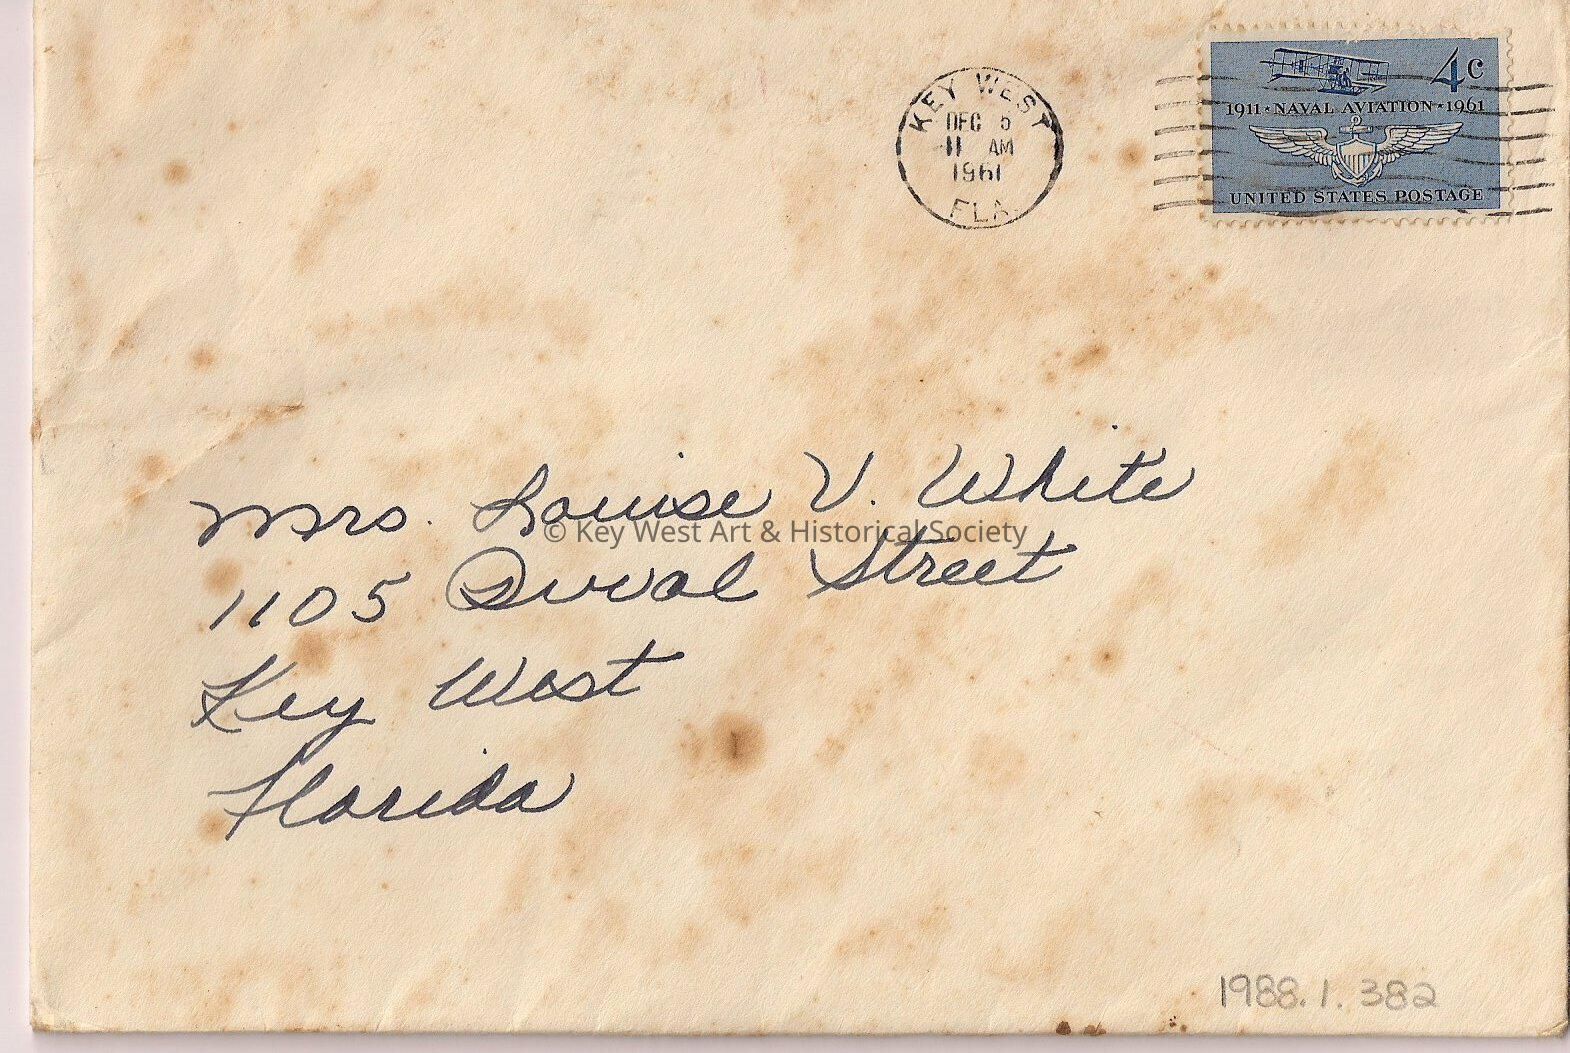 KEY WEST
DEC 5
11 AM
1961
FLA
4c
1911 · NAVAL AVIATION · 1961
UNITED STATES POSTAGE
Mrs. Louise V. White
© Key West Art & Historical Society
1105 Duval Street
Key West
Florida
1988.1.382